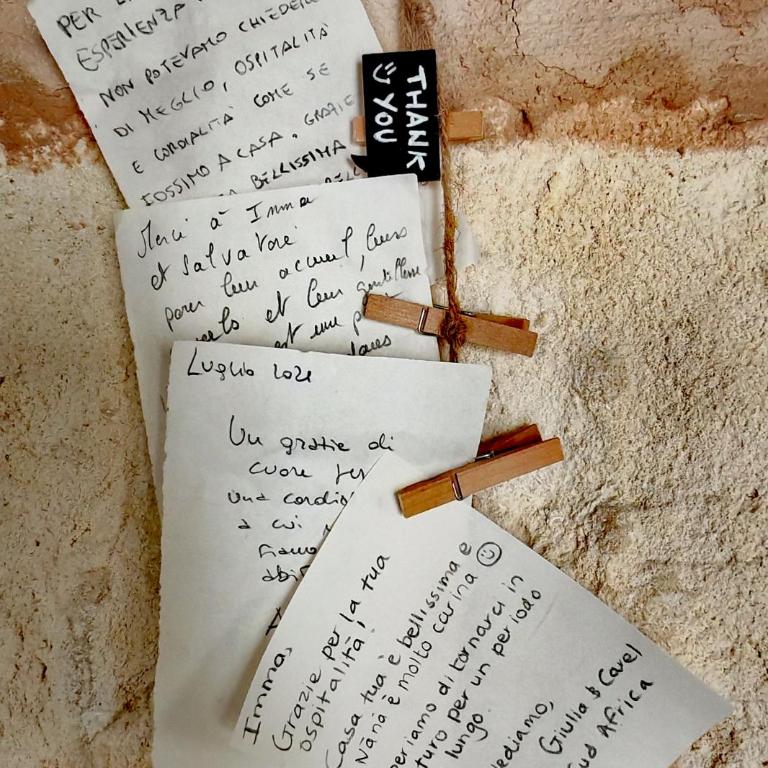 PER
ESPERIENZA
NON POTEVAMO CHIEDERE
DI MEGLIO, OSPITALITÀ
E CORDIALITÀ COME SE
FOSSIMO A CASA. GRAZIE
BELLISSIMA
THANK
YOU
Merci à Imma
et Salvatore
pour leur accueil, leurs
et leur gentillesse
est une
dans
Luglio 2021
Un grazie di
cuore per
una
a cui
siamo
Imma,
Grazie per la tua
ospitalità!
Casa tua è bellissima e
Nanà è molto carina
di tornarci in
per un periodo
lungo.
Giulia & Carel
Sud Africa